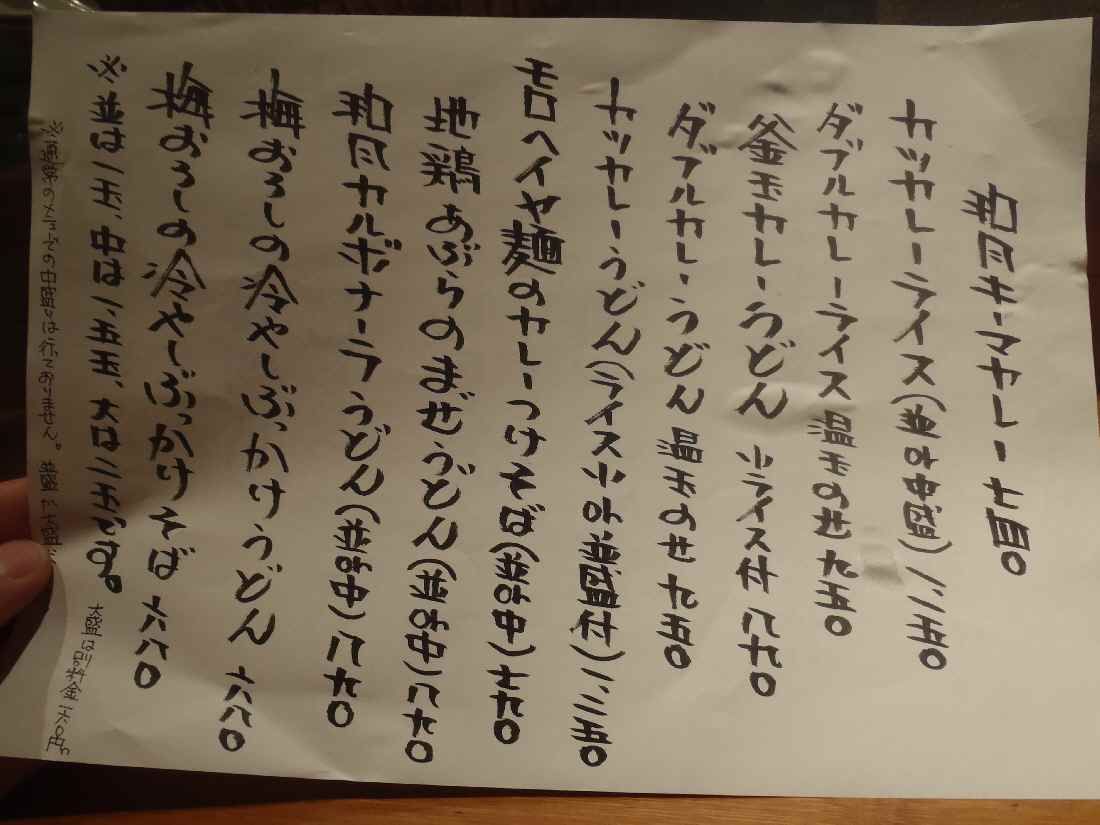 キーマカレー 七四〇
カツカレーライス(並か中盛) 一、二五〇
ダブルカレーライス 温玉のせ 九五〇
釜玉カレーうどん 小ライス付 八九〇
ダブルカレーうどん 温玉のせ 九五〇
カツカレーうどん(ライス小か並盛付) 一、二五〇
モロヘイヤ麺のカレーつけそば(並か中) 七九〇
地鶏あぶらのまぜうどん(並か中) 八九〇
カルボナーラうどん(並か中) 八九〇
梅おろしの冷やしぶっかけうどん 六八〇
梅おろしの冷やしぶっかけそば 六八〇
※並は一玉、中は一、五玉、大は二玉です。
での中盛りは行っておりません。 並盛か大盛に 大盛は別料金一六〇円。